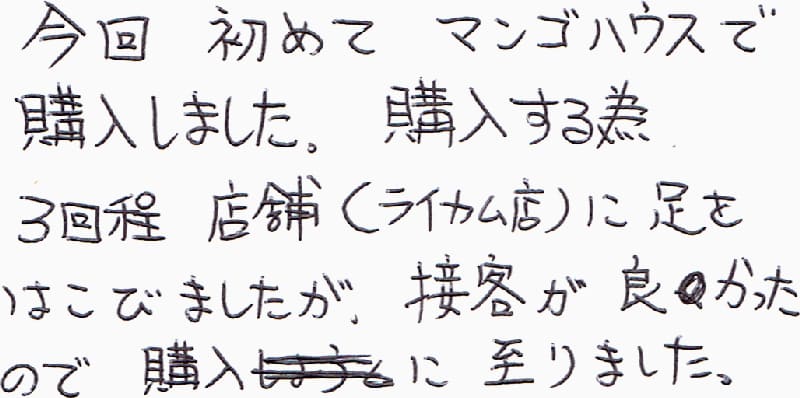 今回 初めて マンゴハウスで
購入しました。 購入する為
3回程 店舗(ライカム店)に 足を
はこびましたが、接客が 良かった
ので 購入に 至りました。